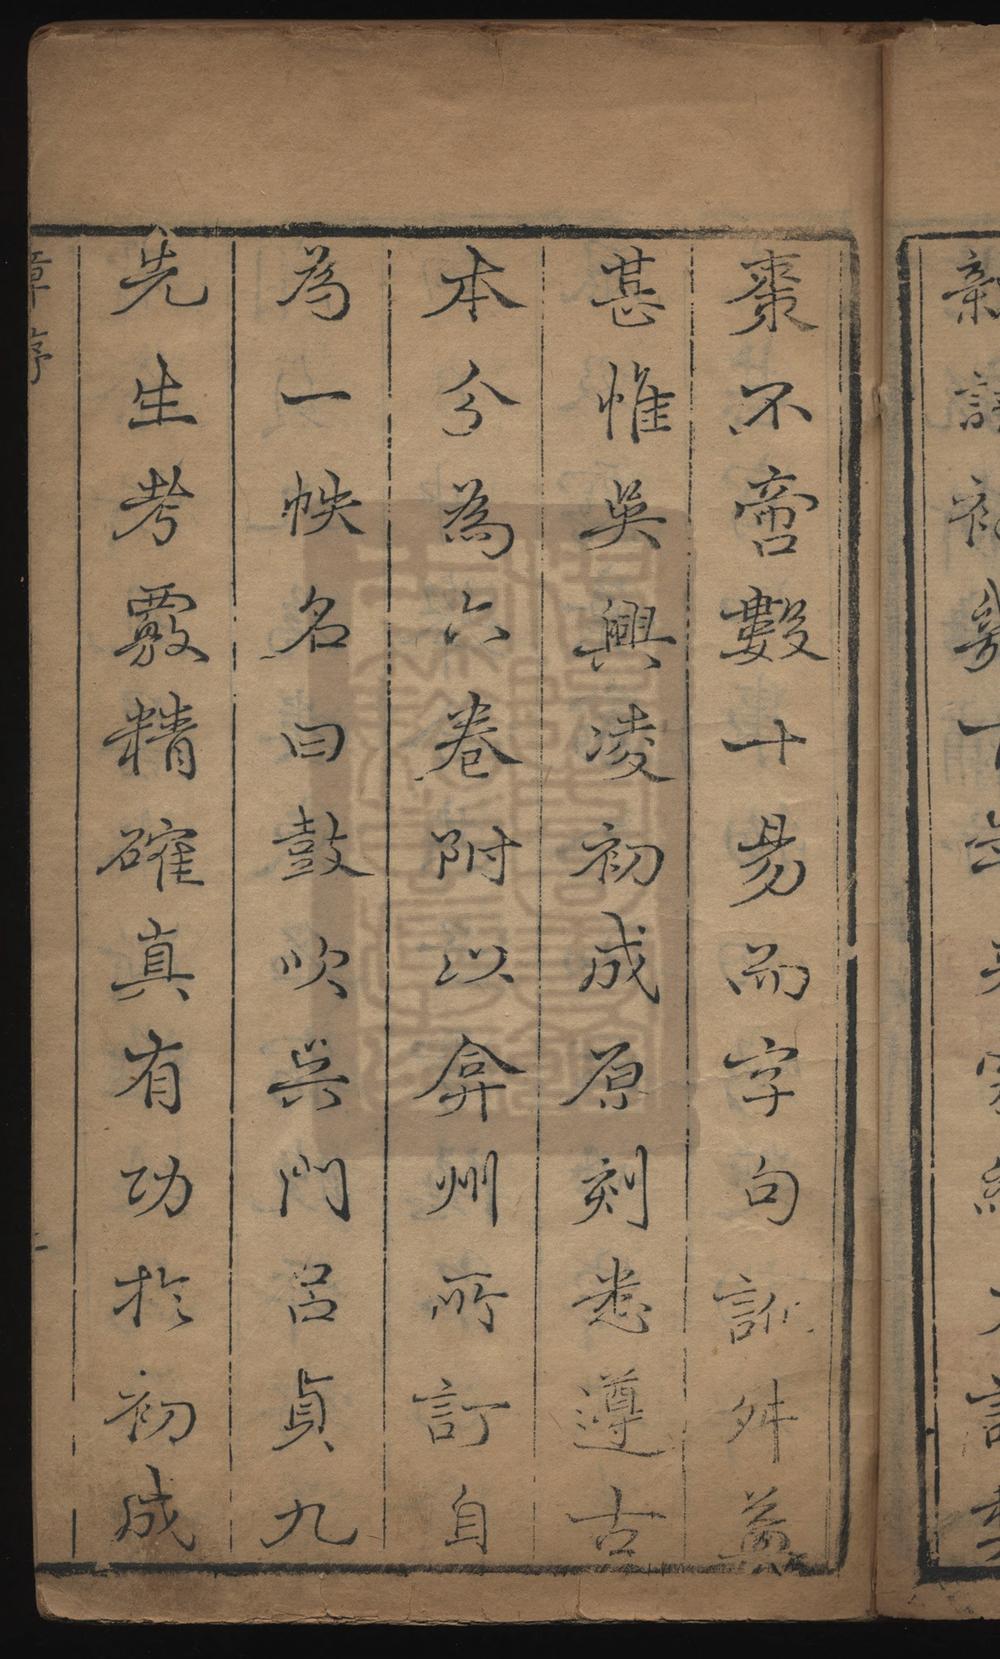 棗不啻數十易而字句訛舛益
甚惟吳興凌初成原刻悉遵古
本分為六卷附以弇州所訂自
為一帙名曰鼓吹吳門呂貞九
先生考覈精確真有功於初成
章序